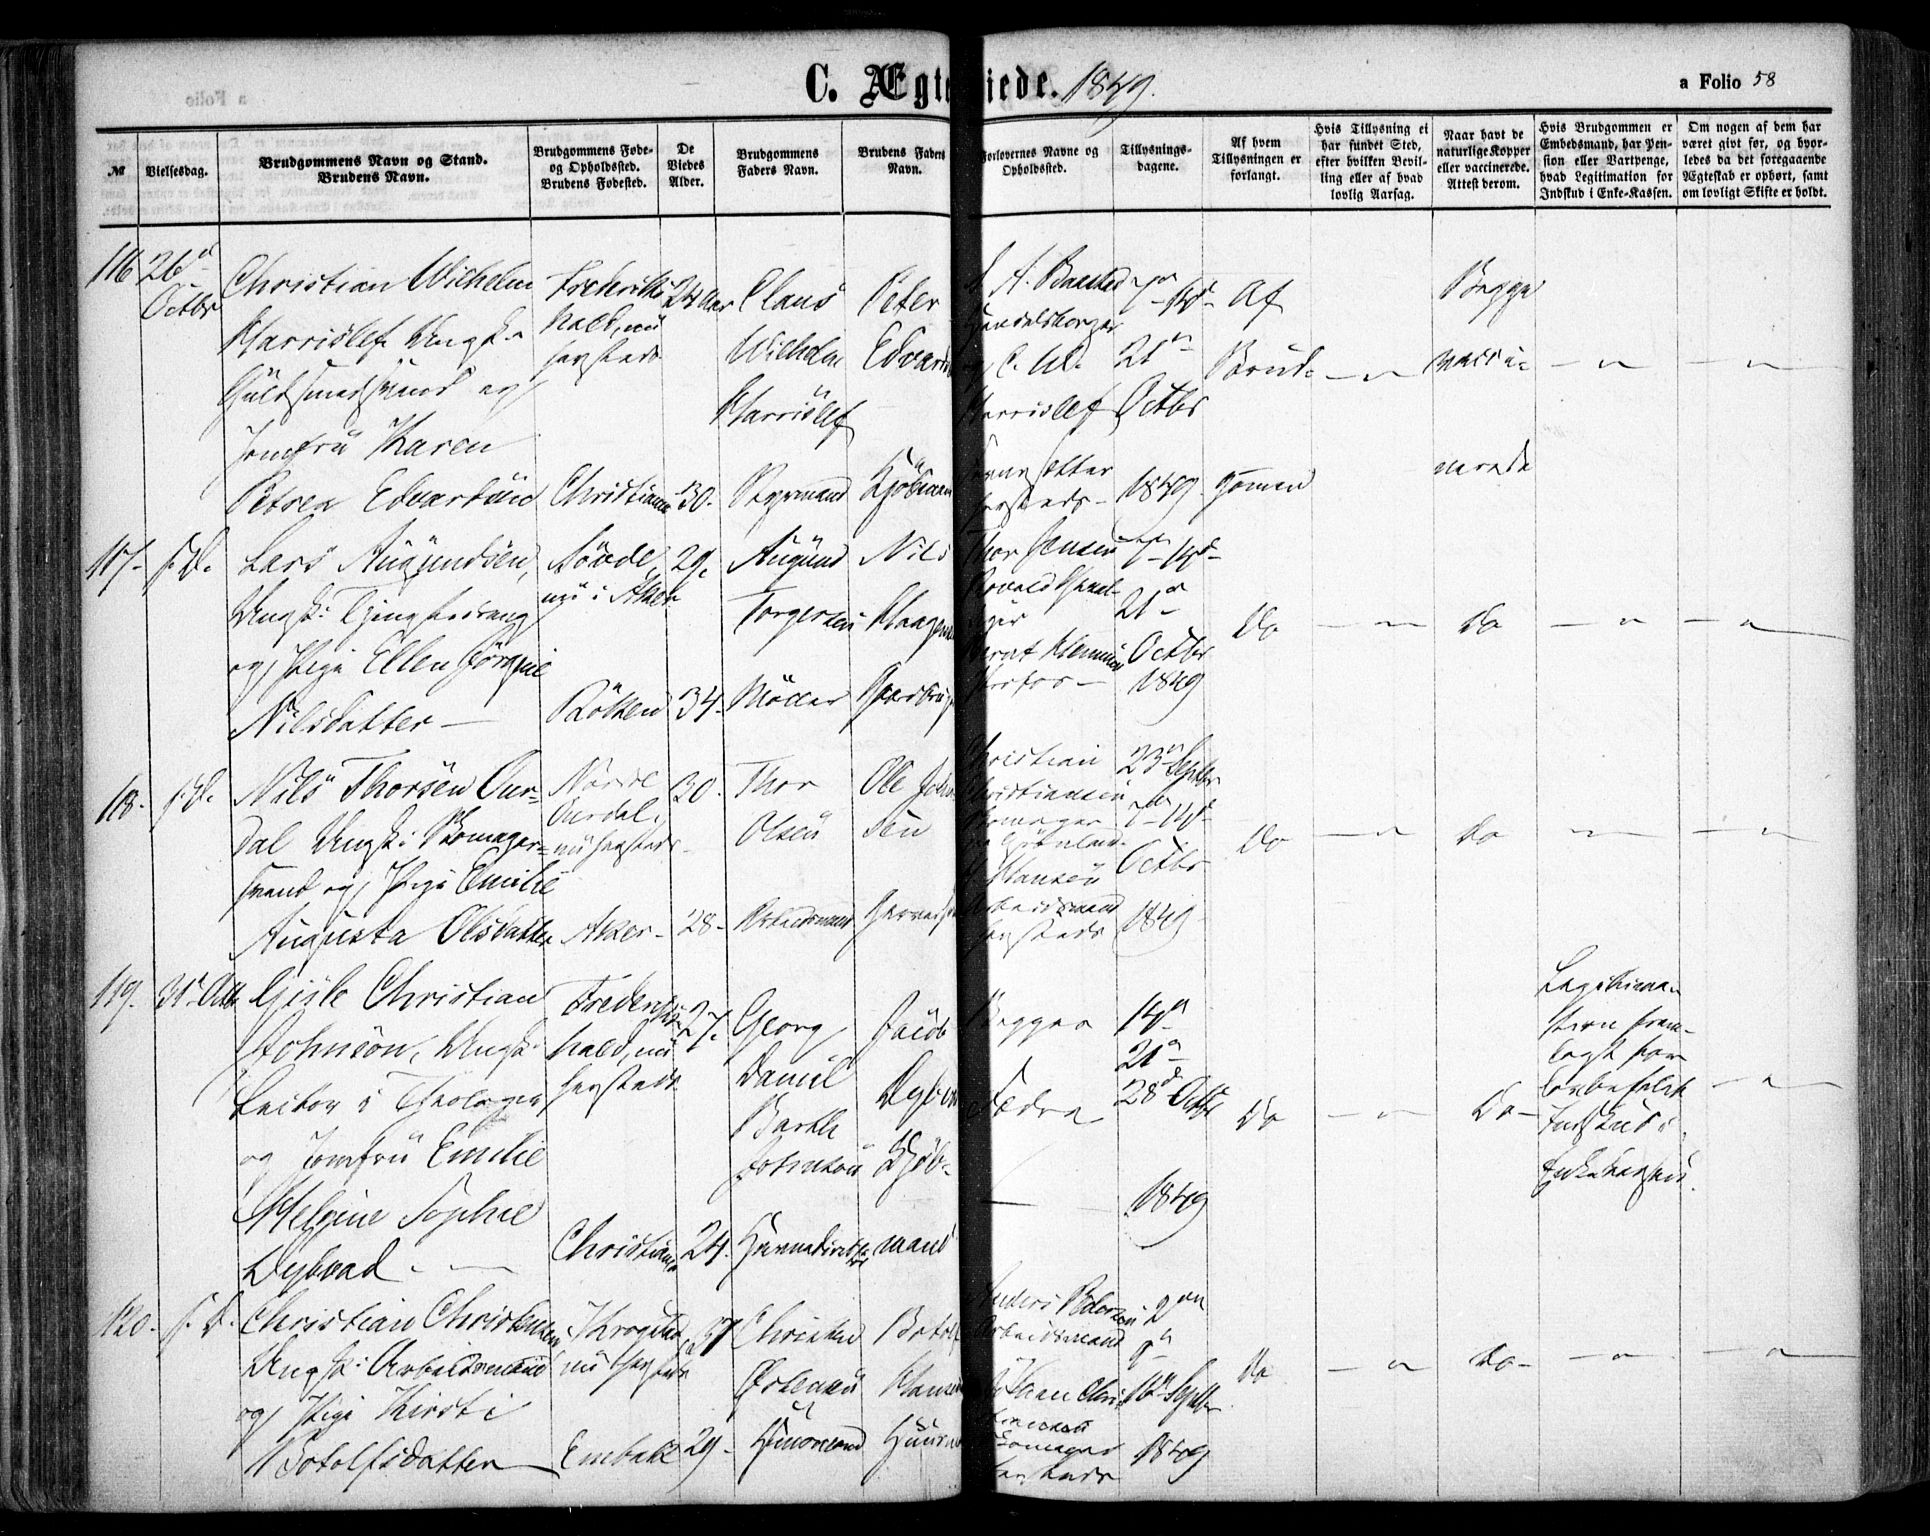 C. Ægte iede. 1849.
a Folio 58
№
Vielsesdag.
Brudgommens Navn og Stand.
Brudens Navn.
Brudgommens Føde-
og Opholdssted.
Brudens Fødested.
De
Viedes
Alder.
Brudgommens
Faders Navn.
Brudens Faders
Navn.
Forlovernes Navne og
Opholdssted.
Tillysnings-
dagene.
Af hvem
Tillysningen er
forlangt.
Hvis Tillysning ei
har fundet Sted,
efter hvilken Bevil-
ling eller af hvad
lovlig Aarsag.
Naar havt de
naturlige Kopper
eller vaccinerede.
Attest derom.
Hvis Brudgommen er
Embedsmand, har Pen-
sion eller Vartpenge,
hvad Legitimation for
Indskud i Enke-Kassen.
Om nogen af dem har
været gift før, og hvor-
ledes da det foregaaende
Ægteskab er ophørt, samt
om lovligt Skifte er holdt.
116
26de
Octbr
Christian Wilhelm
Harrislef Ungk.
Guldsmedsvend og
Jomfru Karen
Petrea Edvardsen
Frederiks
hald, nu
hersteds
Christiania
24 Aar
30.
Claus
Wilhelm
Harrislef
Styrmand
Peter
Edvards
Kjøbmand
A. Baastad
Handelsborger
C. W.
Harrislef
hersteds
7de 14de
21de
Octbr
1849.
Af
Brud-
gommen
Begge
vacci-
nerede
117.
s. D.
Lars Augundsen,
Ungk: Tjenestedreng
og Pige Ellen Jørgine
Nilsdatter
nu i Aker
Röken
29.
34.
Augund
Torgersen
Møller
Nils
Haagens
Thor Jensen
7de 14de
21de
Octbr
1849
Do
Do
118.
s. D.
Nils Thorsen Our-
dal Ungk: Skomager-
svend og Pige Emilie
Augusta Olsdatter
Nørre
Ourdal,
nu hersteds
Aker
30.
28.
Thor
Olsen
Arbeidsmand
Ole Joh
sen
Christian
Christiansen
Skomager
Hansen
Arbeidsmand
hersteds
23de Septbr
7de 14de
Octbr
1849
Do
Do
119.
31te Octbr
Gisle Christian
Johnson, Ungk:
Lector i Theologien
og Jomfru Emilie
Helgine Sophie
Dybvad.
Frederiks
hald, nu
hersteds
Christiania
27.
24.
Georg
Daniel
Barth
Johnson
Havnedirecteur
Jacob
Dybvad
Kjøb-
mand
Begges
Fædre
14de
21de
28de Octbr
1849
Do
Do
Legitima-
tion frem-
lagt for
lovbefalet
Indskud i
Enkekassen.
120.
s. D.
Christian Christensen
Ungk: Arbeidsmand
og Pige Kirsti
Botolfsdatter
Krogstad
nu hersteds
Enebak
37
29.
Christen
Østensen
Huusmand
Botolf
Hansen
Huusm
Anders Pedersen
Arbeidsmand
Johan Chris
tensen
Skomager
hersteds
2den
9de
16de Septbr
1849
Do
Do